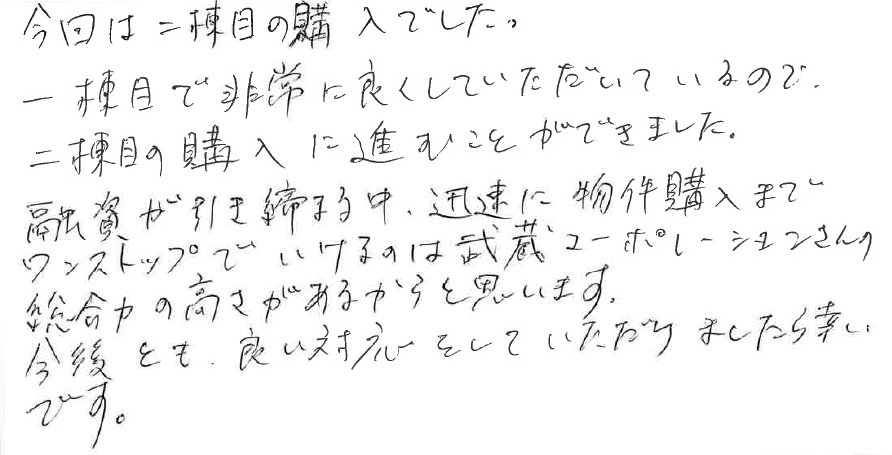 今回は二棟目の購入でした。
一棟目で非常に良くしていただいているので、
二棟目の購入に進むことができました。
融資が引き締まる中、迅速に物件購入まで
ワンストップでいけるのは武蔵コーポレーションさんの
総合力の高さがあるからと思います。
今後とも、良い対応をしていただけましたら幸い
です。